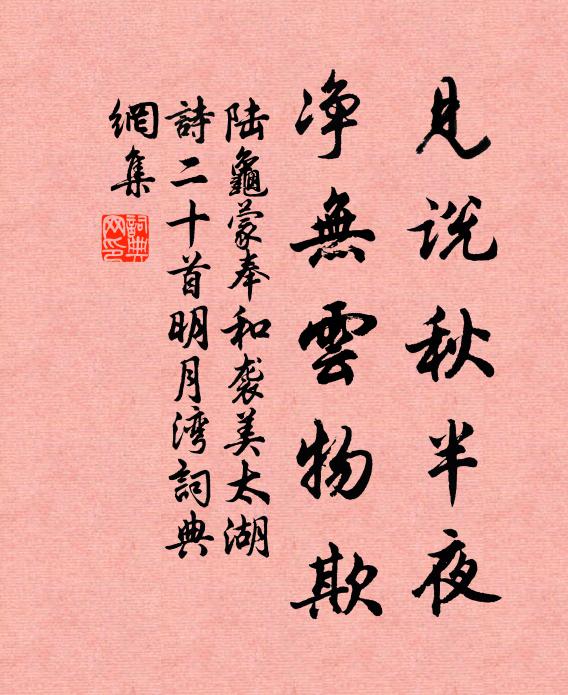 見説秋半夜
净無雲物欺
陆龜蒙奉和袭美太湖
詩二十首明月湾詞典
網集
詞典網印